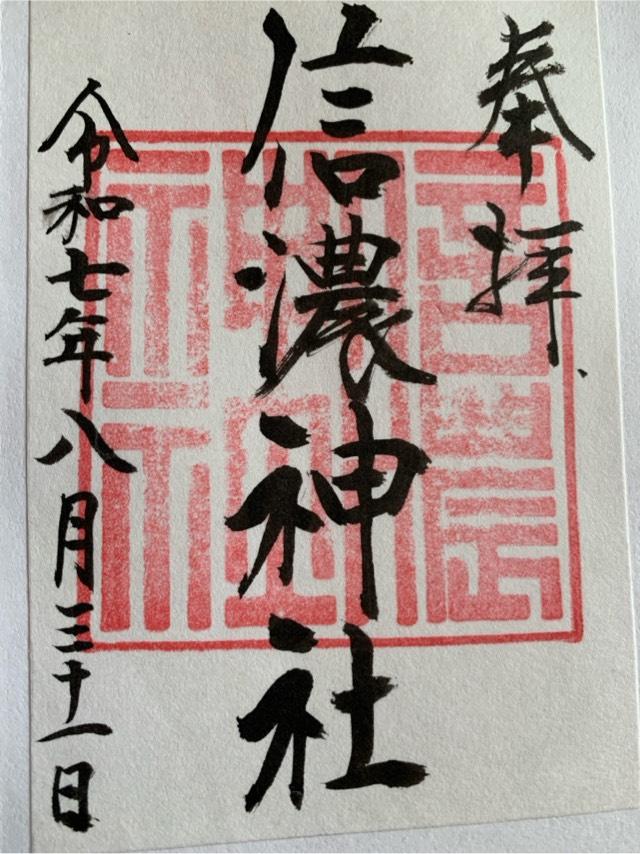 奉拝
信濃神社
令和七年八月三十一日